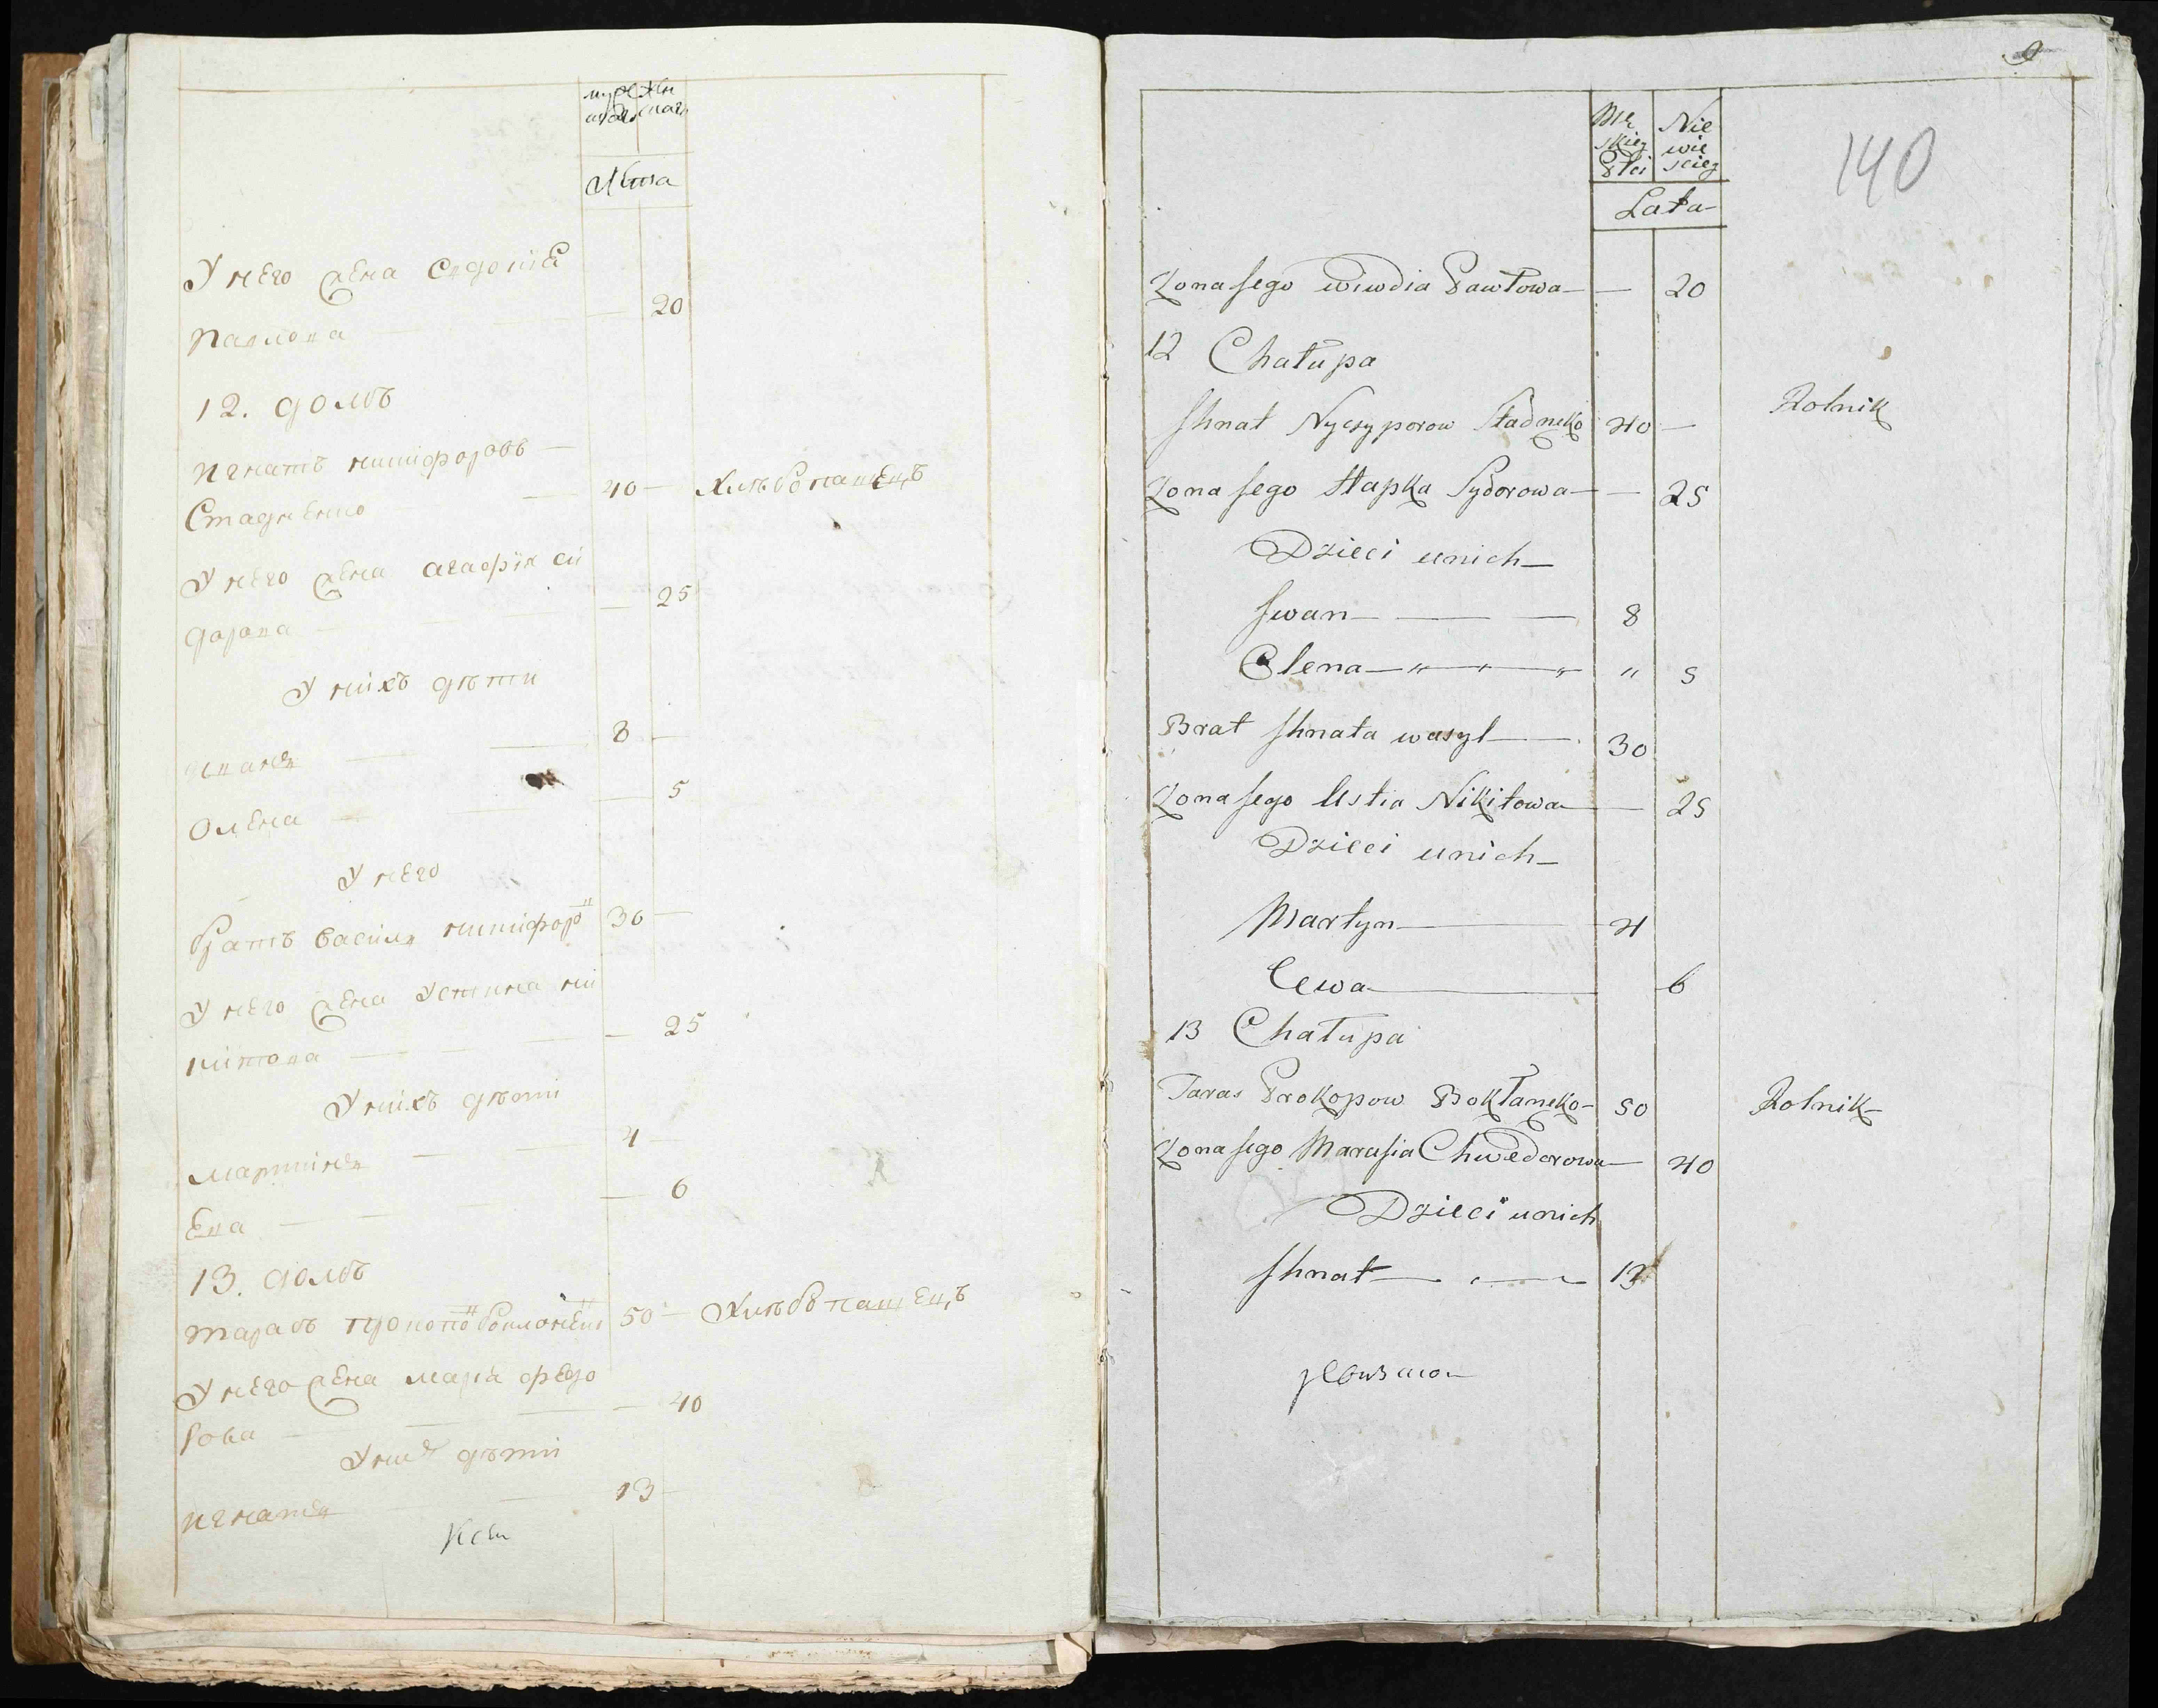 Лѣта
У него жена Євдокіѣ
Павлова — 20
12. домъ
Игнатъ никифоровъ —
Стаднѣнко — 40 — Хлѣбопашецъ
У него жена агафія си
дорова — — 25
У нихъ дѣти
иванъ — 8 —
Олена — — 5
У него
братъ василь никифоро 30 —
У него жена Устина ни
китова — — 25
У нихъ дѣти
мартинъ — 4 —
Ева — — 6
13. домъ
тарасъ прокопо 50 — Хлѣбопашецъ
У него жена марія федо
рова — — 40
У них дѣти
игнатъ — 13 —
9
140
Mę Nie
skiey wie
Płci sciey
Lata
Zona Jego Wiwdia Pawłowa — — 20
12 Chałupa
Ihnat Nyczyporow Stadneko 40 — Rolnik
Zona Jego Hapka Sydorowa — — 25
Dzieci unich —
Iwan — — — 8
Olena — " — " — " " 5
Brat Ihnata wasyl — 30
Zona Jego Ustia Nikitowa — 25
Dzieci unich —
Martyn — 4
Ewa — 6
13 Chałupa
Taras Prokopow Bokłaneko — 50 Rolnik
Zona Jego Marusia Chwedorowa — 40
Dzieci unich
Ihnat — — 13